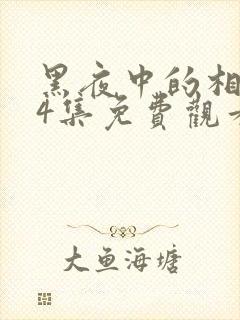 黑夜中的相
4集免費觀看
大鱼海塘